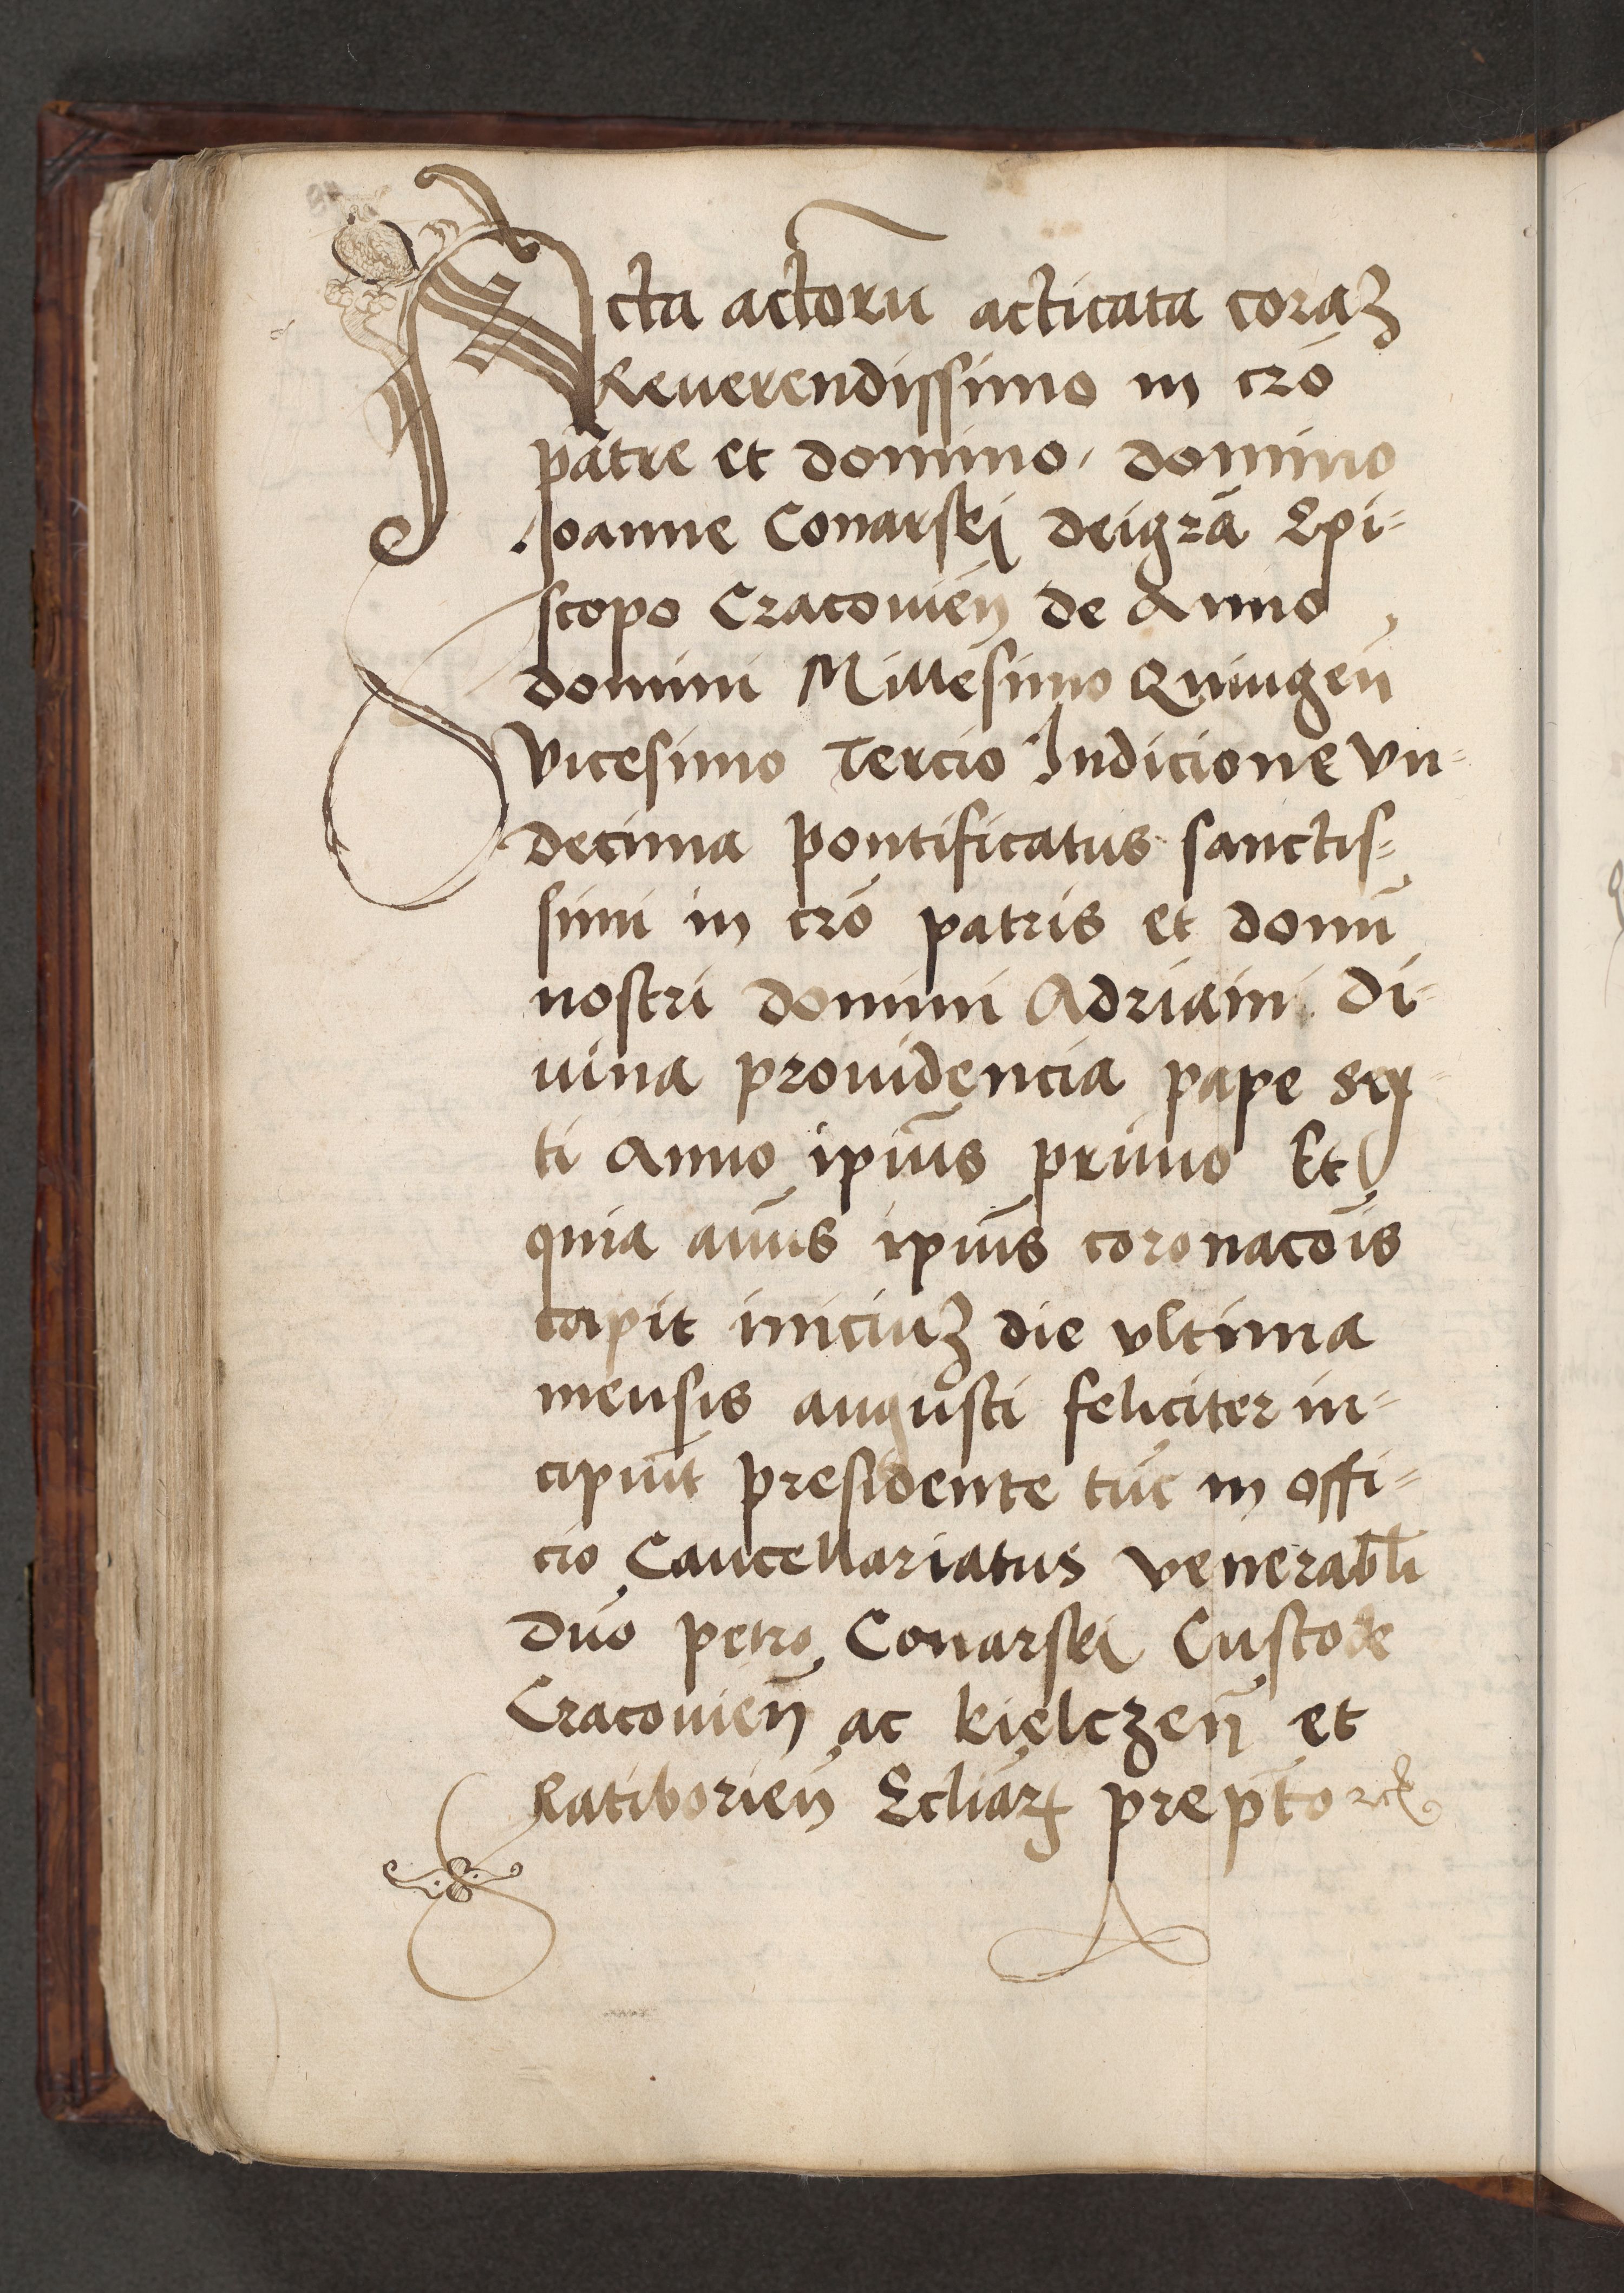 Acta actorũ acticata coraꝫ
Reuerendissimo in cr̄o
patre et domino, domino
Joanne Conarskj deigrã Epi=
scopo Cracouien̄ de Anno
domini Millesimo Quingen̄
vicesimo Tercio Indicione vn=
decima pontificatus sanctis=
simi in cr̄o patris et domī
nostri domini Adriani di=
uina prouidencia pape sex=
ti Anno ip̄ius primo Et
quia annus ip̄ius coronacōis
capit iniciuꝫ die vltima
mensis augusti feliciter in=
cipiūt presidente tūc in offi=
cio Cancellariatus venerabl̄i
dn̄o petro Conarskj Custode
Cracouien̄ ac kielczen̄ et
Ratiborien̄ Eccl̄iaꝝ prep̄to ꝛcꝭ